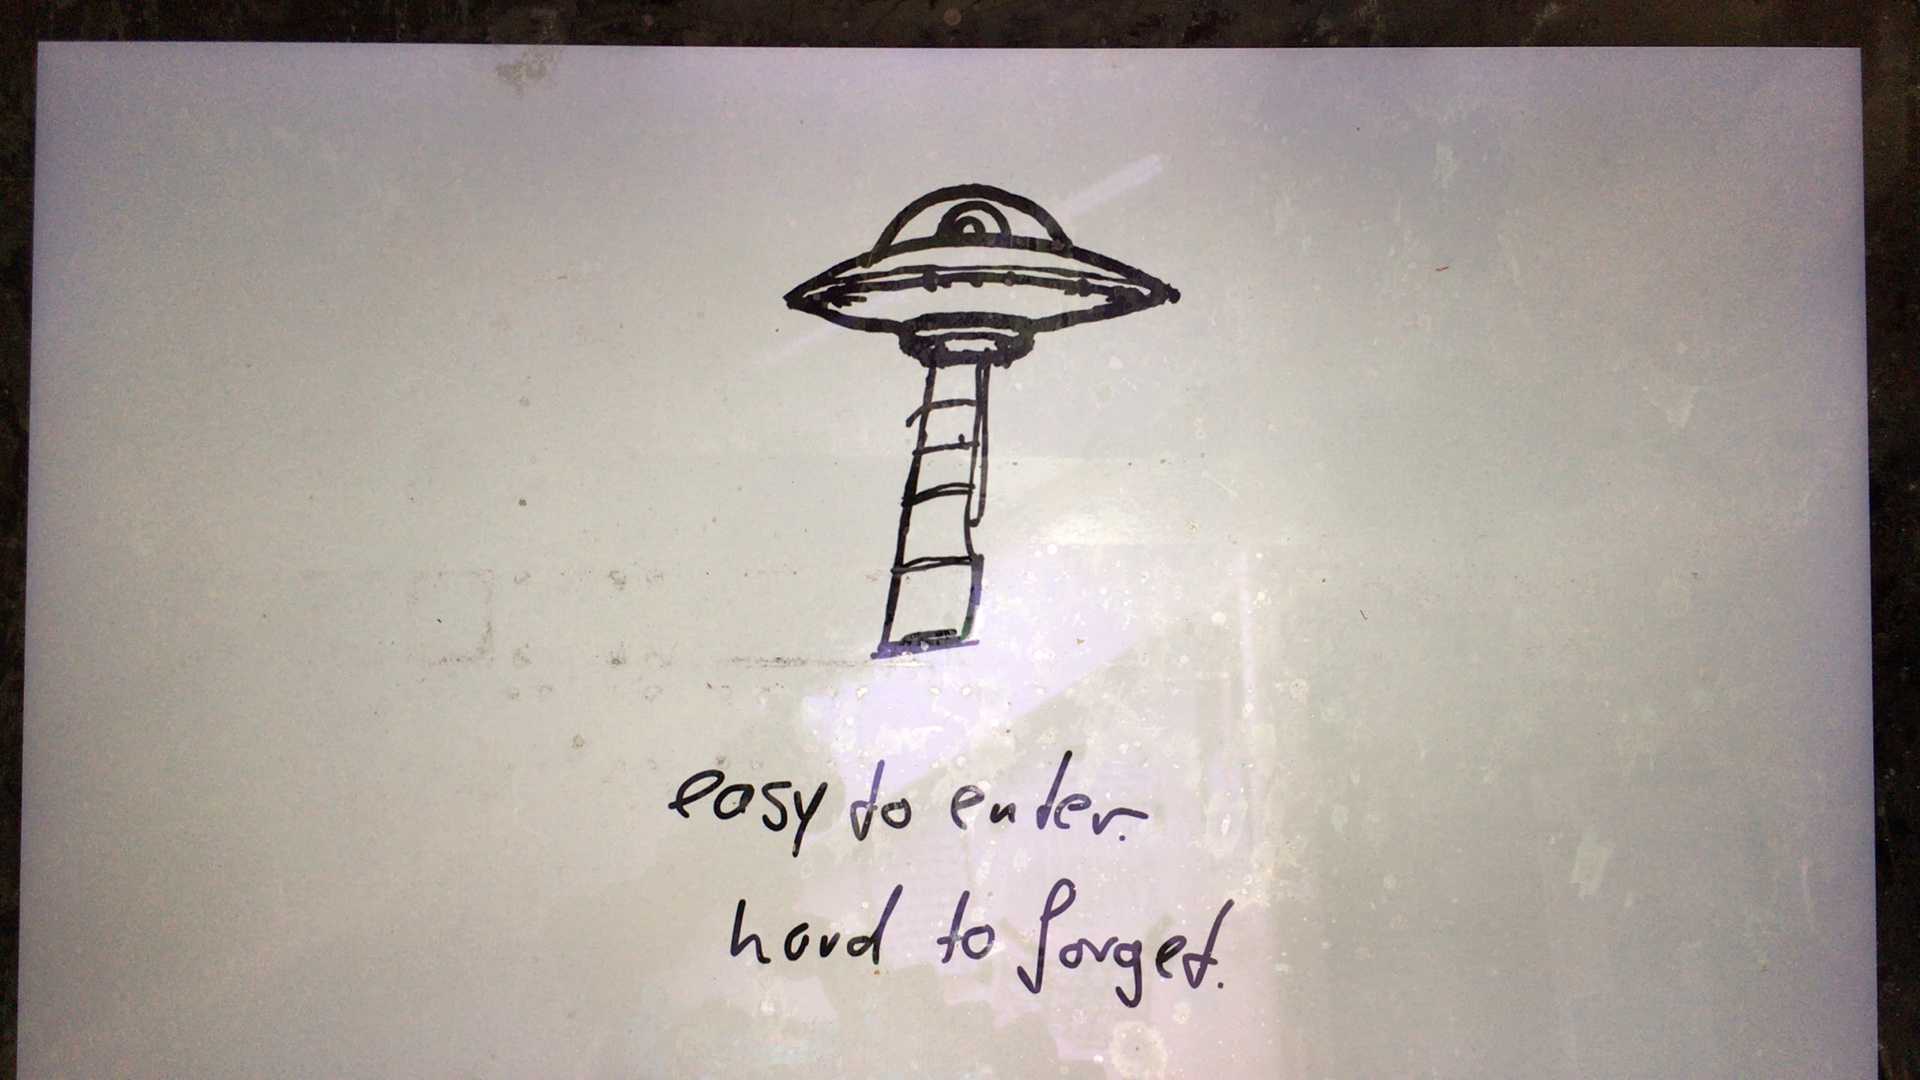 easy to enter.
hard to forget.